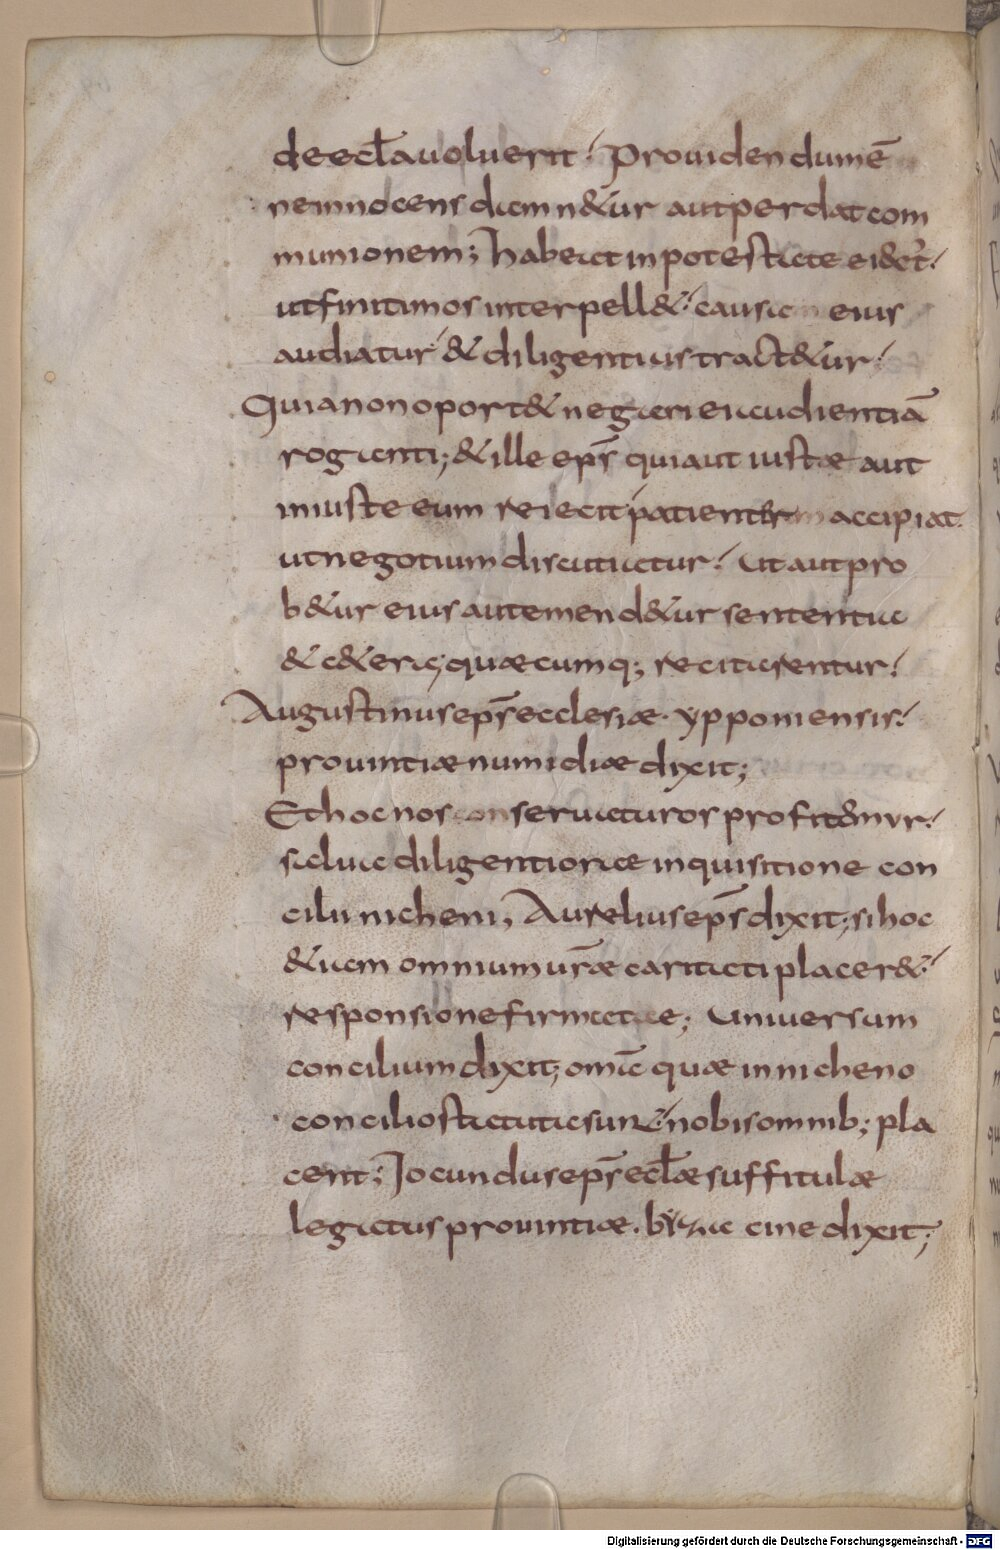 de ecl̄a uoluerit; Prouidendum ē
ne innocens damn&ur aut perdat com
munionem; habeat in potestate ei dat̄;
ut finitimos interpell&; causa eius
audiatur & diligentius tract&ur;
Quia non oport& negari ei audientiā
roganti; & ille ep̄s qui aut iustæ aut
iniuste eum reiecit patienter accipiat
ut negotium discutiatur; Ut aut pro
b&ur eius aut emend&ur sententia
& c&era; quæcumq; recitarentur;
Augustinus ep̄s ecclesiæ ypponiensis;
prouintiæ numidiæ dixit;
Et hoc nos conseruaturos profit&mur;
salua diligentioræ inquisitione con
cilii nicheni, Aurelius ep̄s dixit; si hoc
&iam omnium ur̄æ caritati placer&;
responsione firmate; Uniuersum
concilium dixit; omīa quæ in nicheno
concilio statuta sunt nobis omnib; pla
cent; Iocundus ep̄s ecl̄æ suffitulæ
legatus prouintiæ. byzacine dixit;
Digitalisierung gefördert durch die Deutsche Forschungsgemeinschaft - DFG